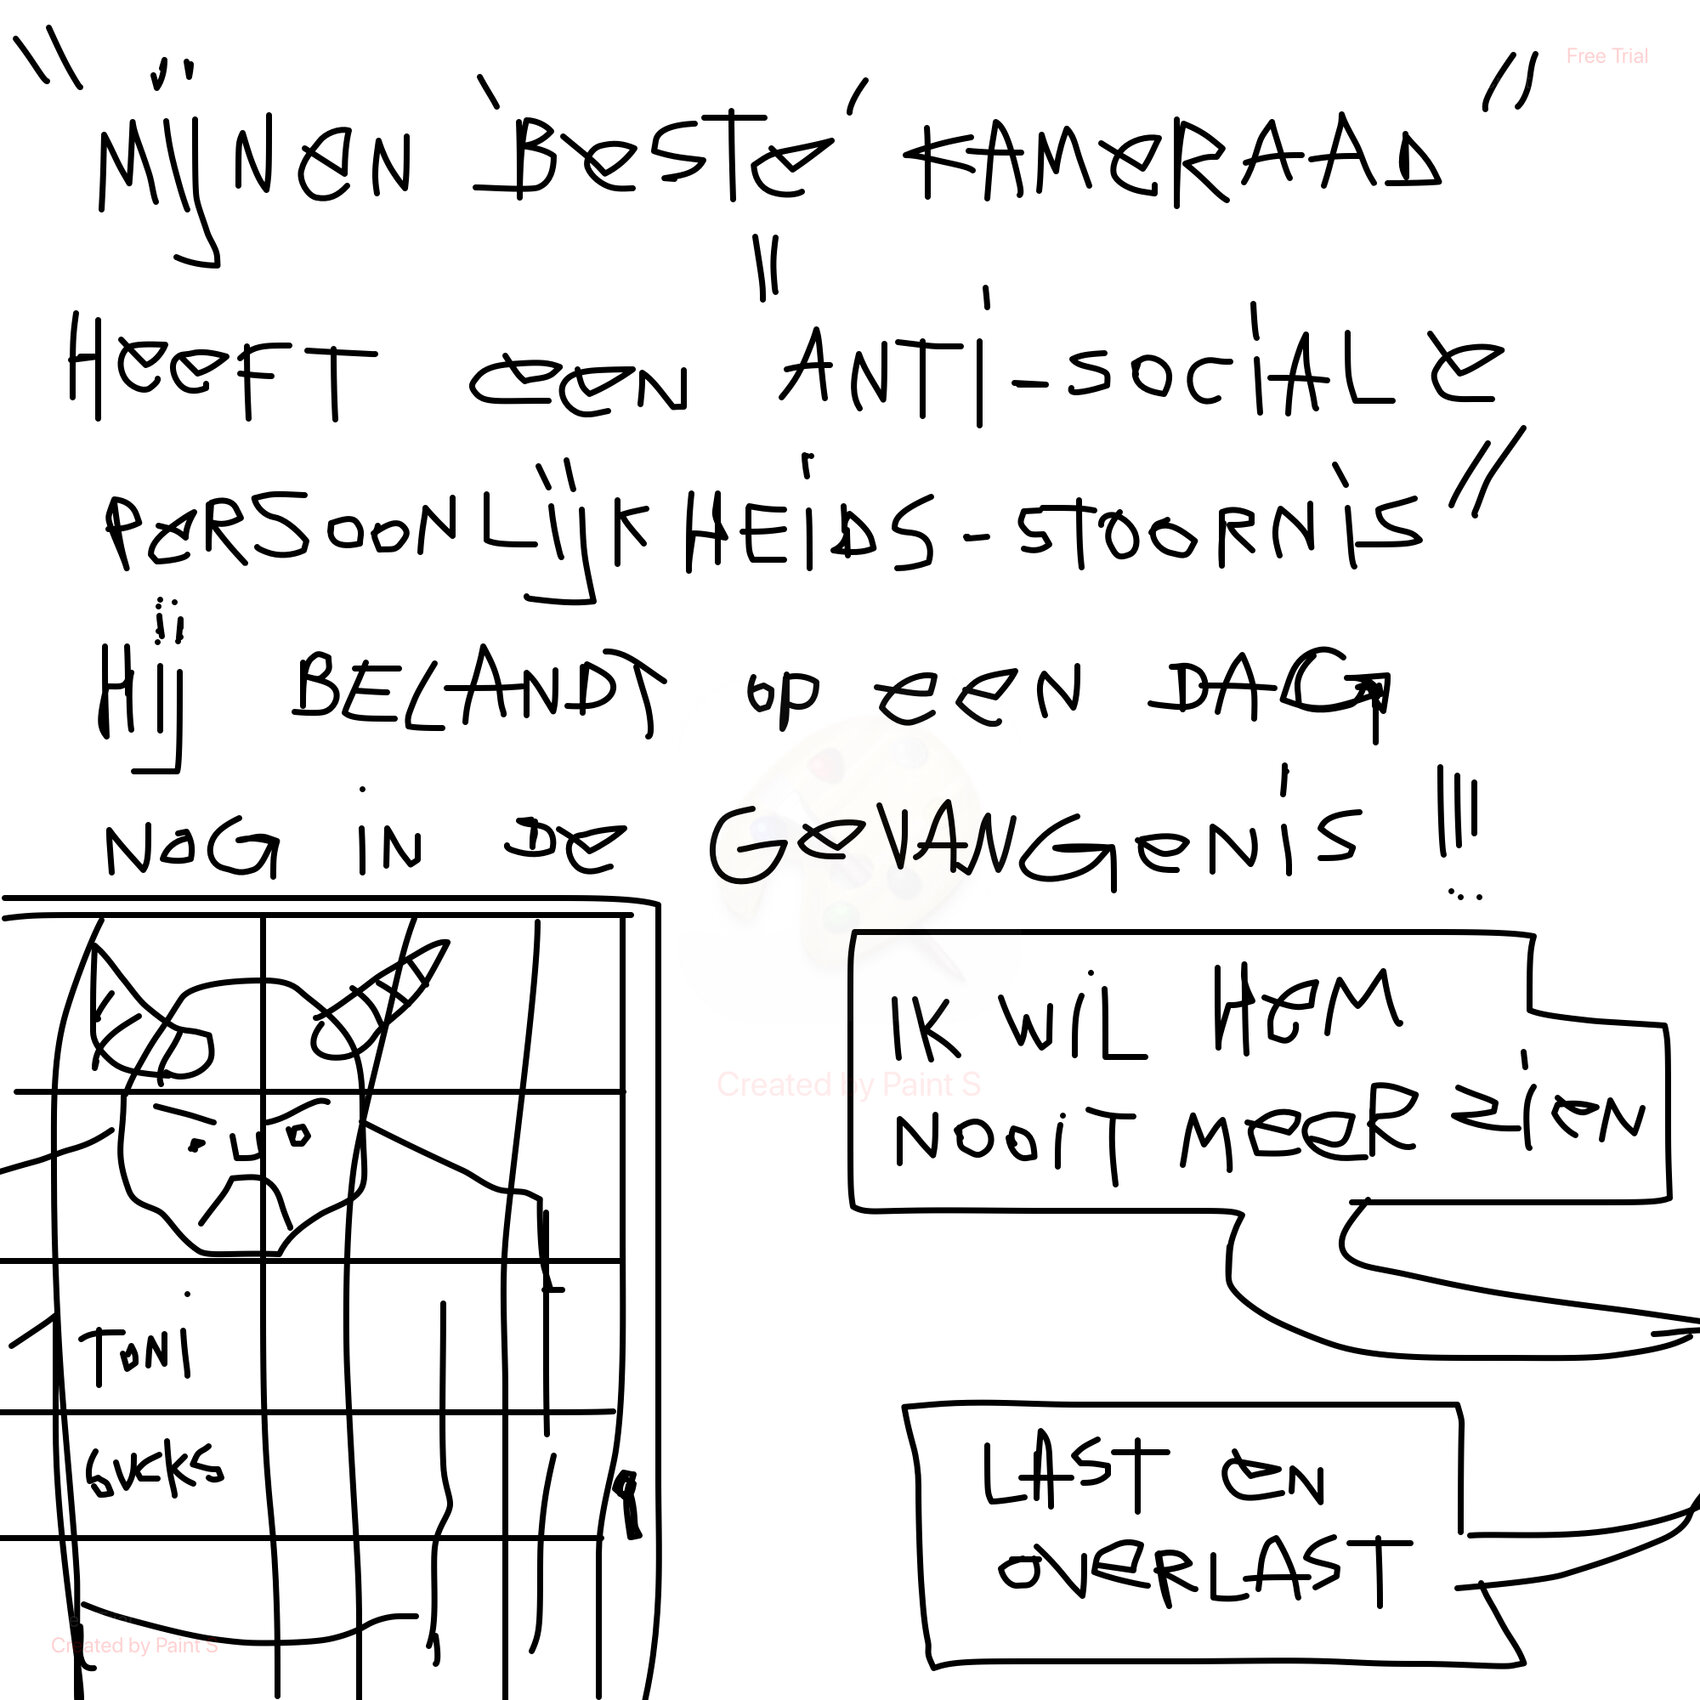 Free Trial
"MIJNEN 'BESTE' KAMERAAD"
HEEFT EEN "ANTI-SOCIALE
PERSOONLIJKHEIDS-STOORNIS"
HIJ BELANDT OP EEN DAG
NOG IN DE GEVANGENIS !!!
IK WIL HEM
NOOIT MEER ZIEN
Created by Paint S
TONI
SUCKS
LAST EN
OVERLAST
Created by Paint S